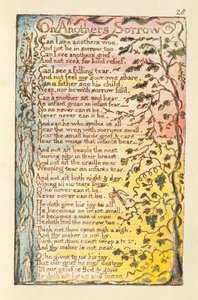 28
On Anothers Sorrow
Can I see anothers woe,
And not be in sorrow too.
Can I see anothers grief,
And not seek for kind relief.
Can I see a falling tear,
And not feel my sorrows share,
Can a father see his child,
Weep, nor be with sorrow fill'd.
Can a mother sit and hear,
An infant groan an infant fear
No no never can it be.
Never never can it be.
And can he who smiles on all
Hear the wren with sorrows small,
Hear the small birds grief & care
Hear the woes that infants bear
And not sit beside the nest
Pouring pity in their breast,
And not sit the cradle near
Weeping tear on infants tear.
And not sit both night & day,
Wiping all our tears away.
O! no never can it be.
Never never can it be.
He doth give his joy to all.
He becomes an infant small.
He becomes a man of woe
He doth feel the sorrow too.
Think not, thou canst sigh a sigh,
And thy maker is not by.
Think not, thou canst weep a tear,
And thy maker is not near.
O! he gives to us his joy,
That our grief he may destroy
Till our grief is fled & gone
He doth sit by us and moan